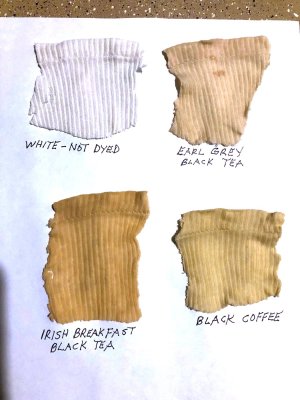 WHITE-NOT DYED
EARL GREY
BLACK TEA
IRISH BREAKFAST
BLACK TEA
BLACK COFFEE